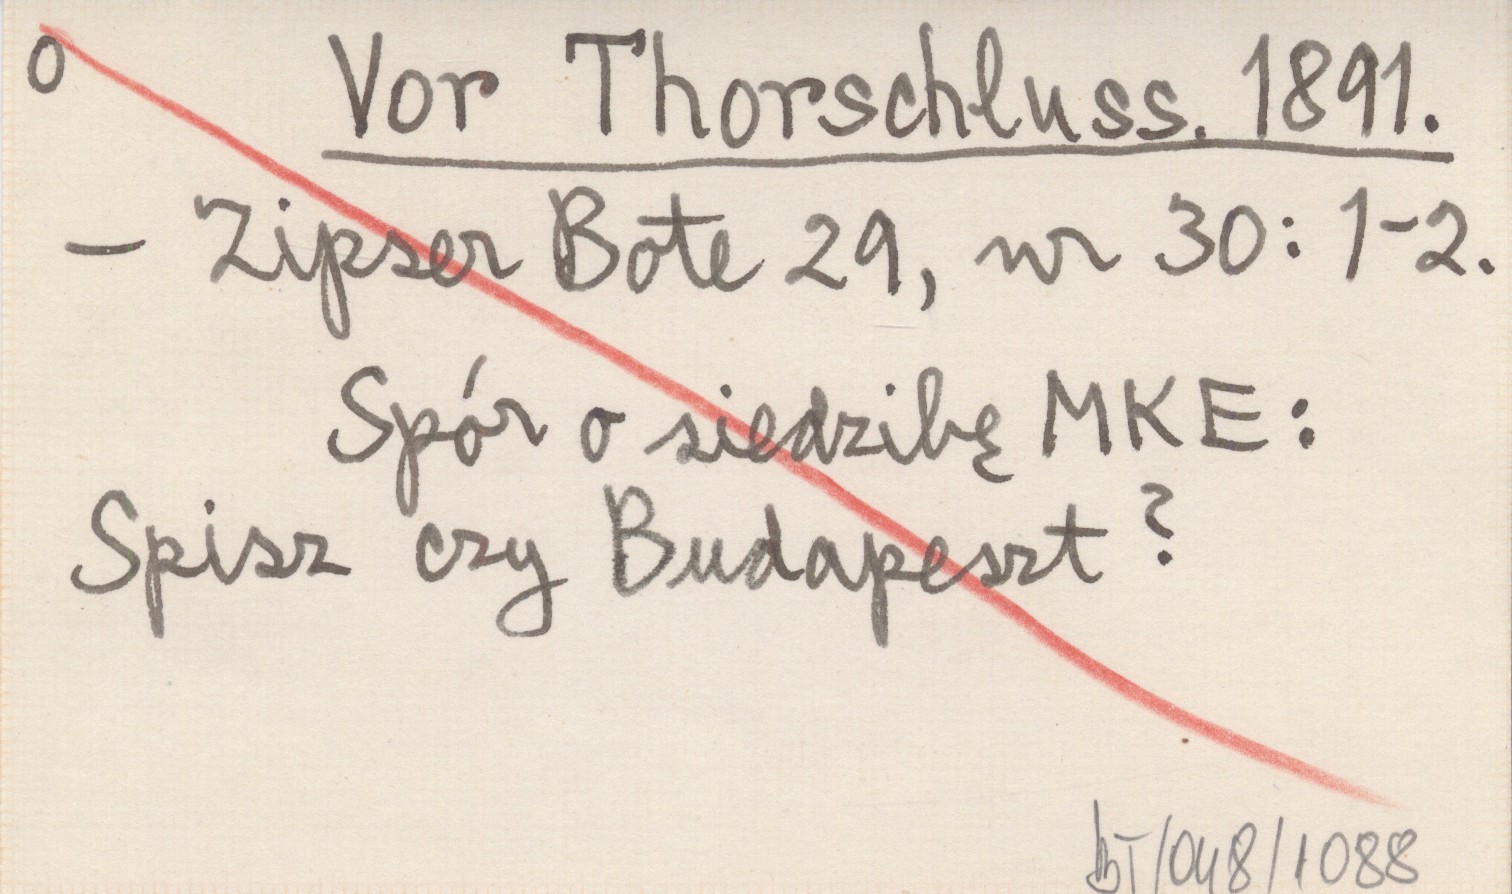 o Vor Thorschluss. 1891.
– Zipser Bote 29, nr 30: 1-2.
Spór o siedzibę MKE:
Spisz czy Budapeszt?
bT/048/1088